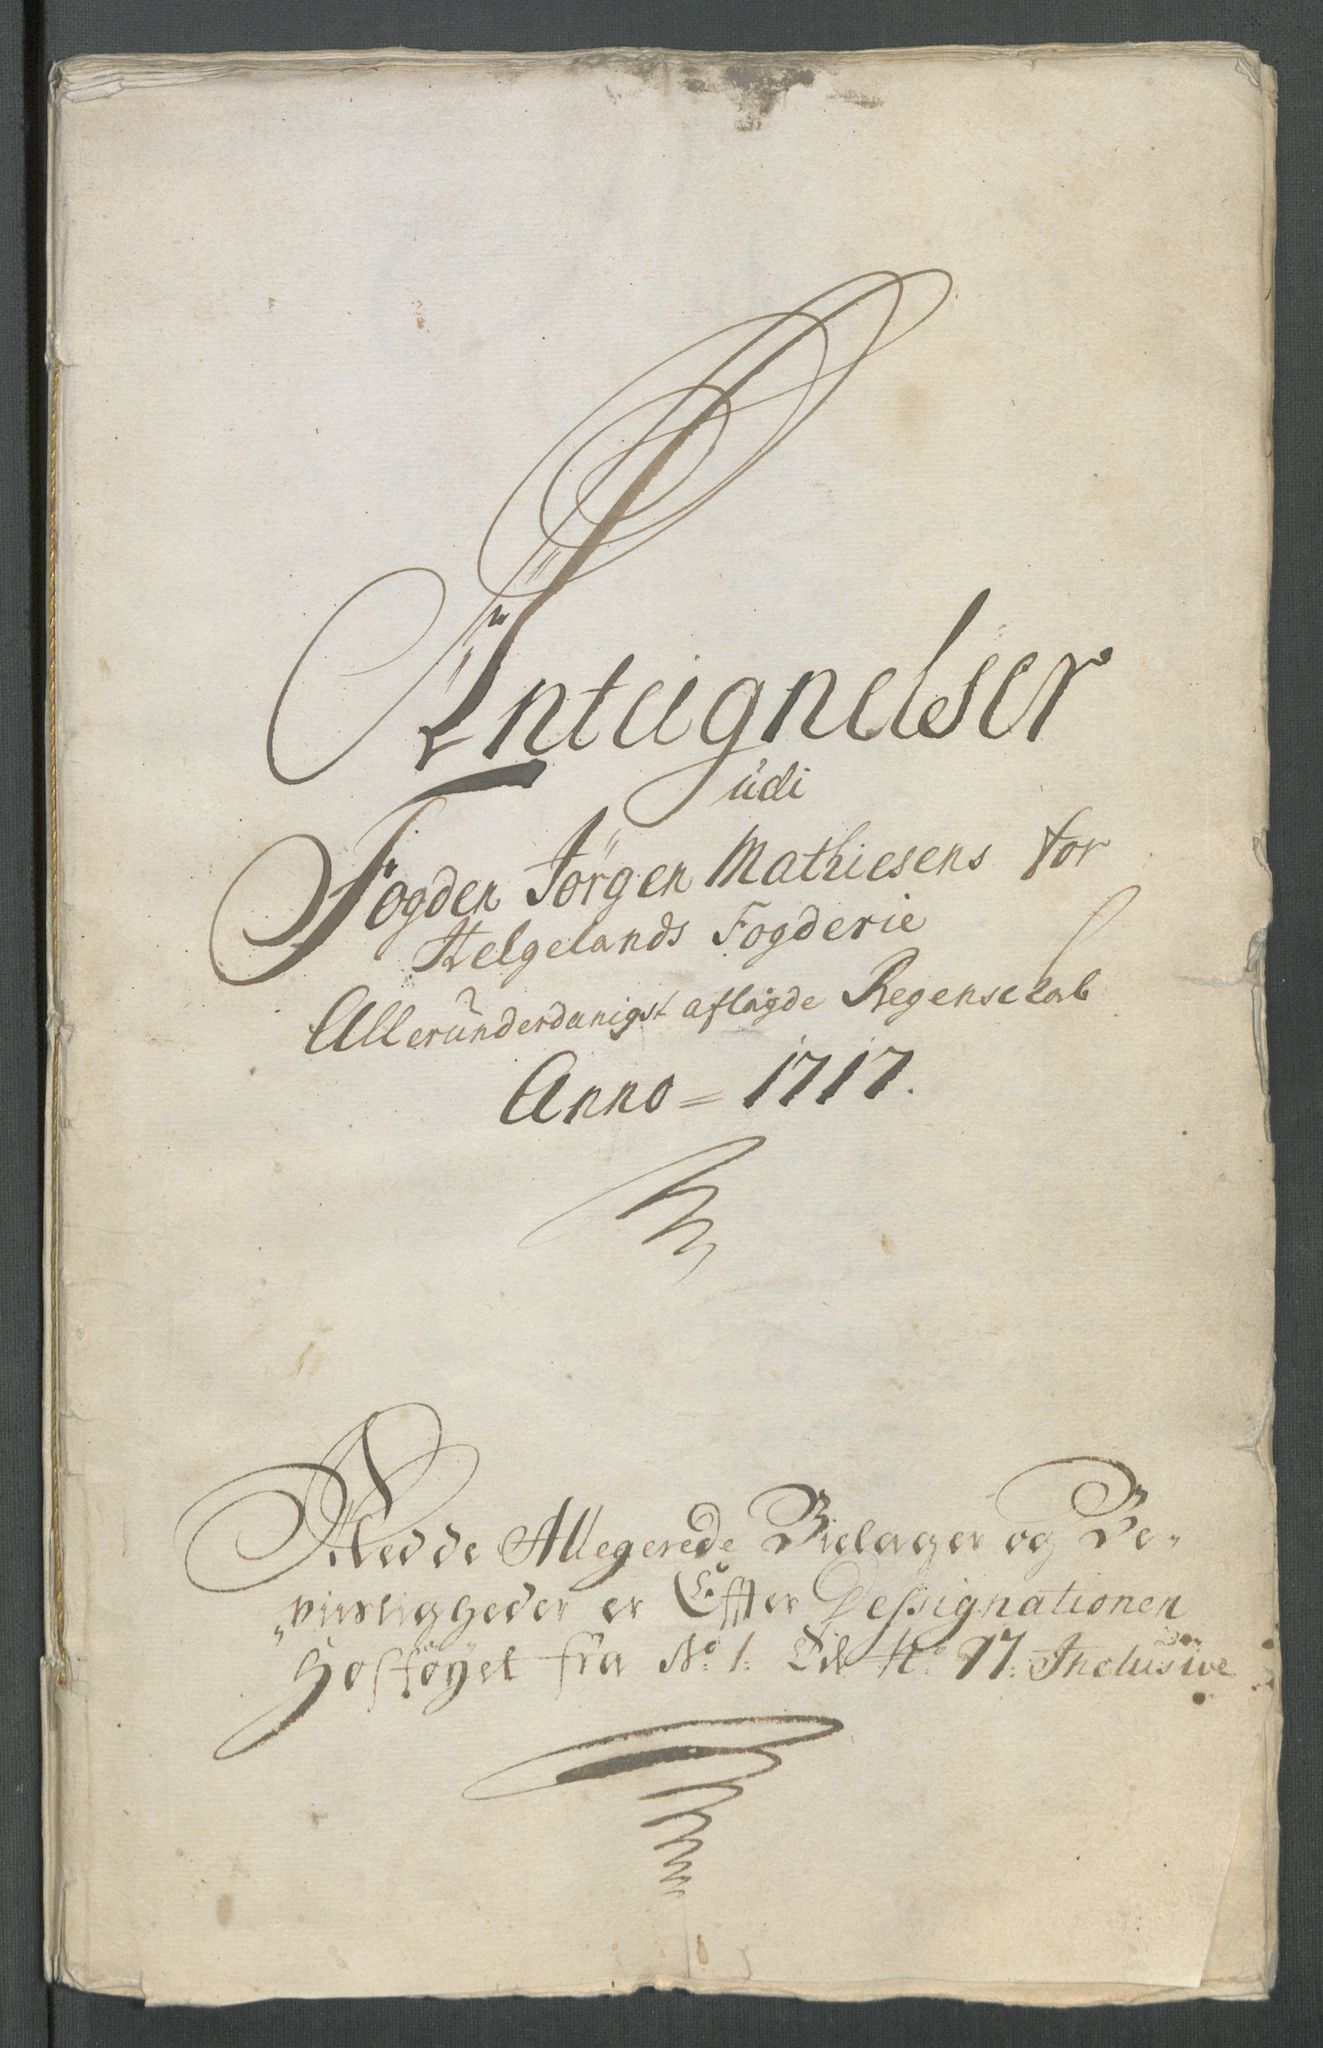 Antegnelser
udi
Fogden Jørgen Mathiesens for
Helgelands Fogderie
Allerunderdanigst aflagde Regenskab
Anno = 1717.
Med de Allegerede Bielager og Be-
viisligheder er Effter Dessignationen
Hosføyet fra No. 1. Til No. 77. Inclusive